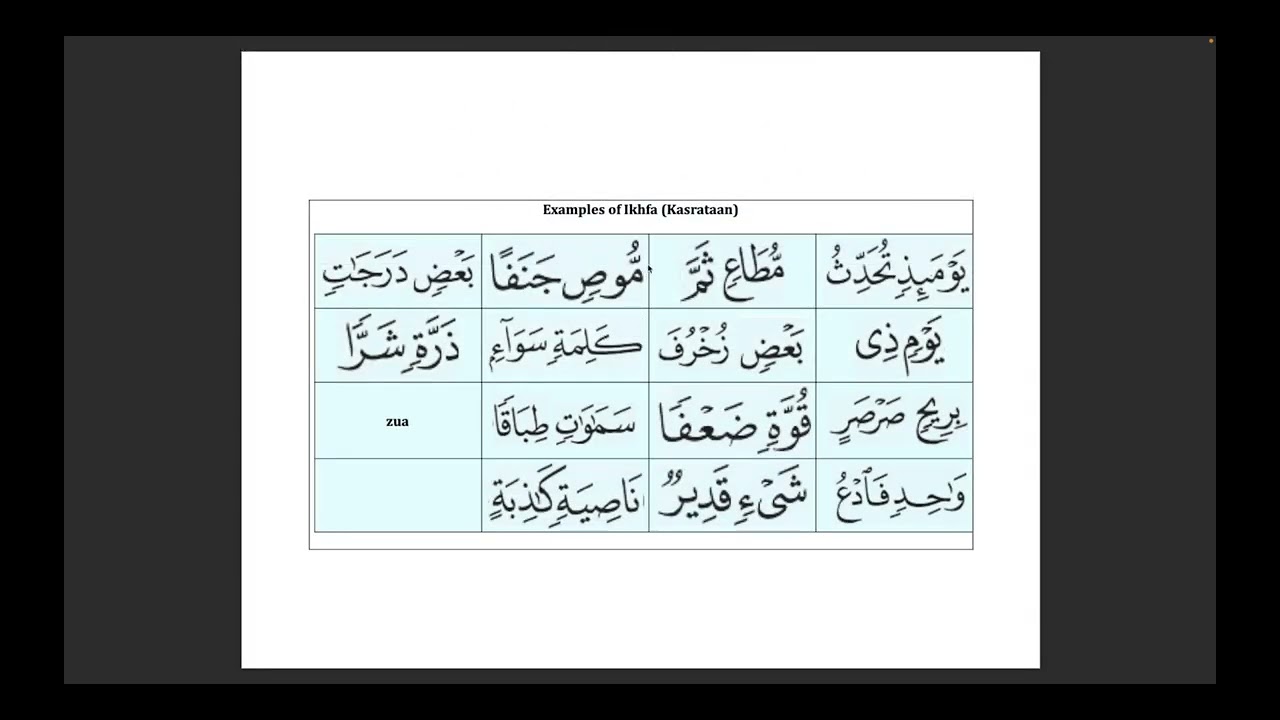 Examples of Ikhfa (Kasrataan)
يَوْمَئِذٍ تُحَدِّثُ مُّطَاعٍ ثَمَّ مُّوصٍ جَنَفًا بَعْضٍ دَرَجَٰتٍ
يَوْمٍ ذِى بَعْضٍ زُخْرُفَ كَلِمَةٍ سَوَآءٍ ذَرَّةٍ شَرًّا
بِرِيحٍ صَرْصَرٍ قُوَّةٍ ضَعْفًا سَمَٰوَٰتٍ طِبَاقًا zua
وَٰحِدٍ فَٱدْعُ شَىْءٍ قَدِيرٌ نَاصِيَةٍ كَٰذِبَةٍ